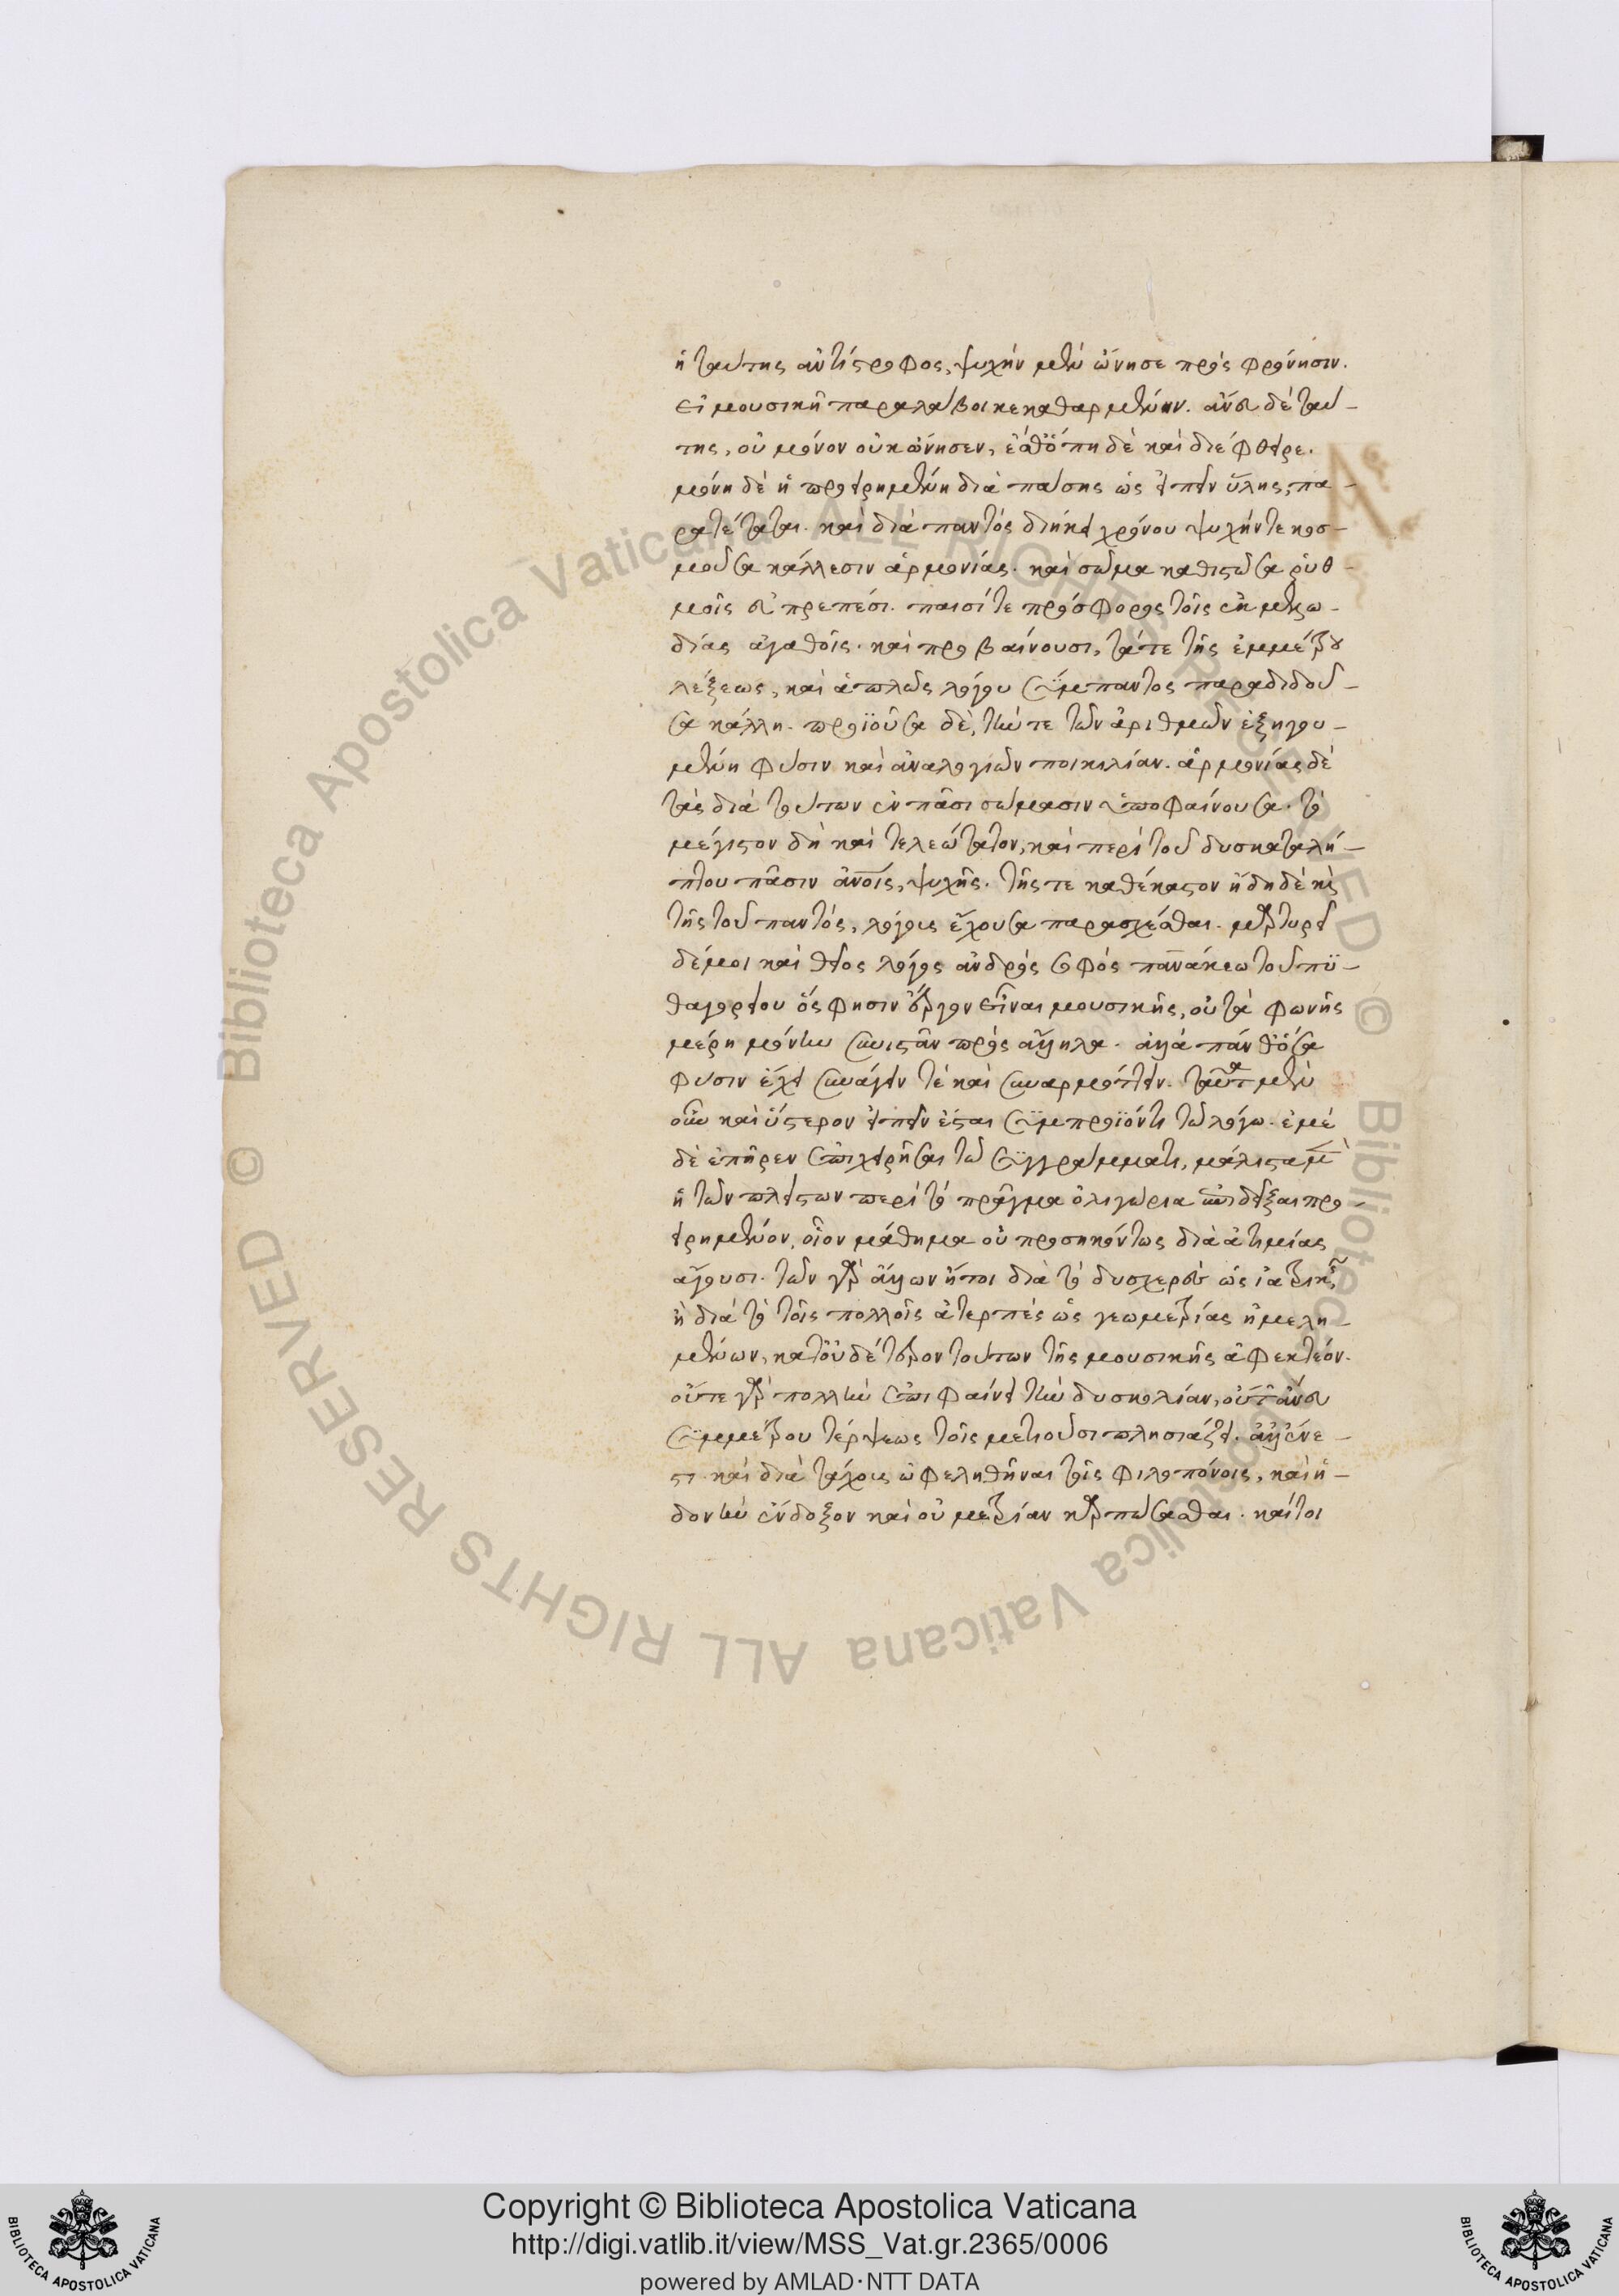 ἡ ταύτης ἀντίστροφος, ψυχὴν μὲν ὤνησε πρὸς φρόνησιν.
εἰ μουσικῇ παραλάβοι κεκαθαρμένην. ἄνευ δὲ ταύ-
της, οὐ μόνον οὐκ ὤνησεν, ἔσθ' ὅπη δὲ καὶ διέφθειρε.
μόνη δὲ ἡ προειρημένη διὰ πάσης ὡς εἰπεῖν ὕλης, πα-
ρατέταται. καὶ διὰ παντὸς διήκει χρόνου ψυχήν τε κοσ-
μοῦσα κάλλεσιν ἁρμονίας. καὶ σῶμα καθιστῶσα ῥυθ-
μοῖς εὐπρεπέσι. παισί τε πρόσφορος τοῖς ἐκ μελῳ-
δίας ἀγαθοῖς. καὶ προβαίνουσι, τά τε τῆς ἐμμέτρου
λέξεως, καὶ ἁπλῶς λόγου σύμπαντος παραδιδοῦ-
σα κάλλη. προϊοῦσα δὲ, τήν τε τῶν ἀριθμῶν ἐξηγου-
μένη φύσιν καὶ ἀναλογιῶν ποικιλίαν. ἁρμονίας δὲ
τὰς διὰ τούτων ἐν πᾶσι σώμασιν ὑποφαίνουσα. τὸ
μέγιστον δὴ καὶ τελεώτατον, καὶ περὶ τοῦ δυσκαταλή-
πτου πᾶσιν ἀνοις, ψυχῆς. τῆς τε καθέκαστον ἤδη δὲ κὶ
τῆς τοῦ παντὸς, λόγους ἔχουσα παρασχέσθαι. μαρτυρεῖ
δέ μοι καὶ θεῖος λόγος ἀνδρὸς σοφὸς πανάκεω τοῦ πϋ-
θαγορείου ὅς φησιν ἔργον εἶναι μουσικῆς, οὐ τὰ φωνῆς
μέρη μόνην συνιστᾶν πρὸς ἄλληλα. ἀλλὰ πάνθ' ὅσα
φύσιν ἔχει συνάγειν τὲ καὶ συναρμόττειν. ταῦτα μὲν
οὖν καὶ ὕστερον εἰπεῖν ἔσται συμπροϊόντι τῷ λόγῳ. ἐμὲ
δὲ ἐπῆρεν ἐπιχειρῆσαι τῷ συγγράμματι, μάλιστα μὲν
ἡ τῶν πλείστων περὶ τὸ πρᾶγμα ὀλιγώρια ὑποδεῖξαι προ-
ειρημένον, οἷον μάθημα οὐ προσηκόντως διὰ ἀτιμίας
ἄγουσι. τῶν γὰρ ἄλλων ἤτοι διὰ τὸ δυσχερὲς ὡς ἰατρικῆς
ἢ διὰ τὸ τοῖς πολλοῖς ἀτερπὲς ὡς γεωμετρίας ἠμελη-
μένων, κατ' οὐδέτερον τούτων τῆς μουσικῆς ἀφεκτέον.
οὔτε γὰρ πολλὴν ἐπιφαίνει τὴν δυσκολίαν, οὔτ' ἄνευ
συμμέτρου τέρψεως τοῖς μετιοῦσι πλησιάζει. ἀλλ' ἔνε-
στι καὶ διὰ τάχους ὠφεληθῆναι τοῖς φιλοπόνοις, καὶ ἡ-
δονὴν ἔνδοξον καὶ οὐ μετρίαν καρπώσασθαι. καίτοι
© Biblioteca Apostolica Vaticana ALL RIGHTS RESERVED © Biblioteca Apostolica Vaticana ALL RIGHTS RESERVED
Copyright © Biblioteca Apostolica Vaticana
http://digi.vatlib.it/view/MSS_Vat.gr.2365/0006
powered by AMLAD·NTT DATA
BIBLIOTECA APOSTOLICA VATICANA
BIBLIOTECA APOSTOLICA VATICANA